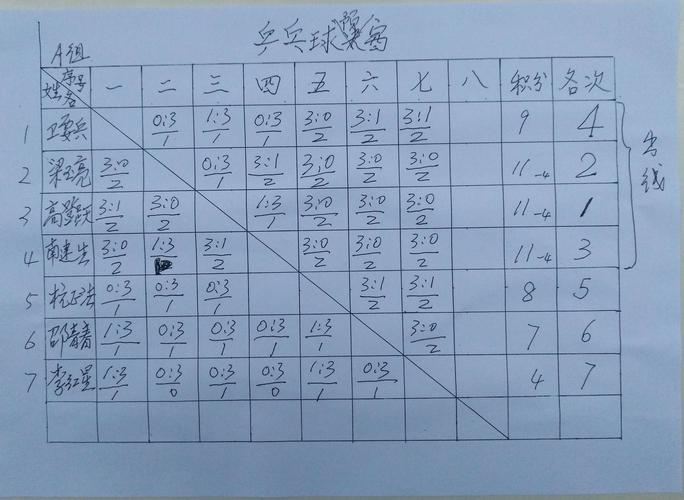 乒乓球
A组
序号 姓名 一 二 三 四 五 六 七 八 积分 名次
1 卫要兵 0:3/1 1:3/1 0:3/1 3:0/2 3:1/2 3:1/2 9 4
2 梁玉亮 3:0/2 0:3/1 3:1/2 3:0/2 3:0/2 3:0/2 11-4 2
3 高跃天 3:1/2 3:0/2 1:3/1 3:0/2 3:0/2 3:0/2 11-4 1
4 南建生 3:0/2 1:3 3:1/2 3:0/2 3:0/2 3:0/2 11-4 3
5 杭正法 0:3/1 0:3/1 0:3/1 3:1/2 3:1/2 8 5
6 邵青青 1:3/1 0:3/1 0:3/1 0:3/1 1:3/1 3:0/2 7 6
7 李红星 1:3/1 0:3/0 0:3/1 0:3/0 1:3/1 0:3/1 4 7
出线